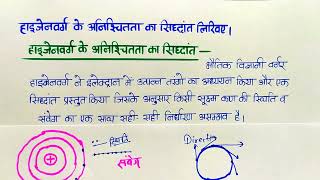 हाइजेनवर्ग के अनिश्चितता का सिध्दांत लिखिए।
हाइजेनवर्ग के अनिश्चितता का सिध्दांत —
भौतिक विज्ञानी वर्नर
हाइजेनवर्ग ने इलेक्ट्रान में उत्पन्न तरंगो का अध्ययन किया और एक
सिध्दांत प्रस्तुत किया जिसके अनुसार किसी सूक्ष्म कण की स्थिति व
संवेग का एक साथ सही-सही निर्धारण असम्भव है।
स्थिति
संवेग